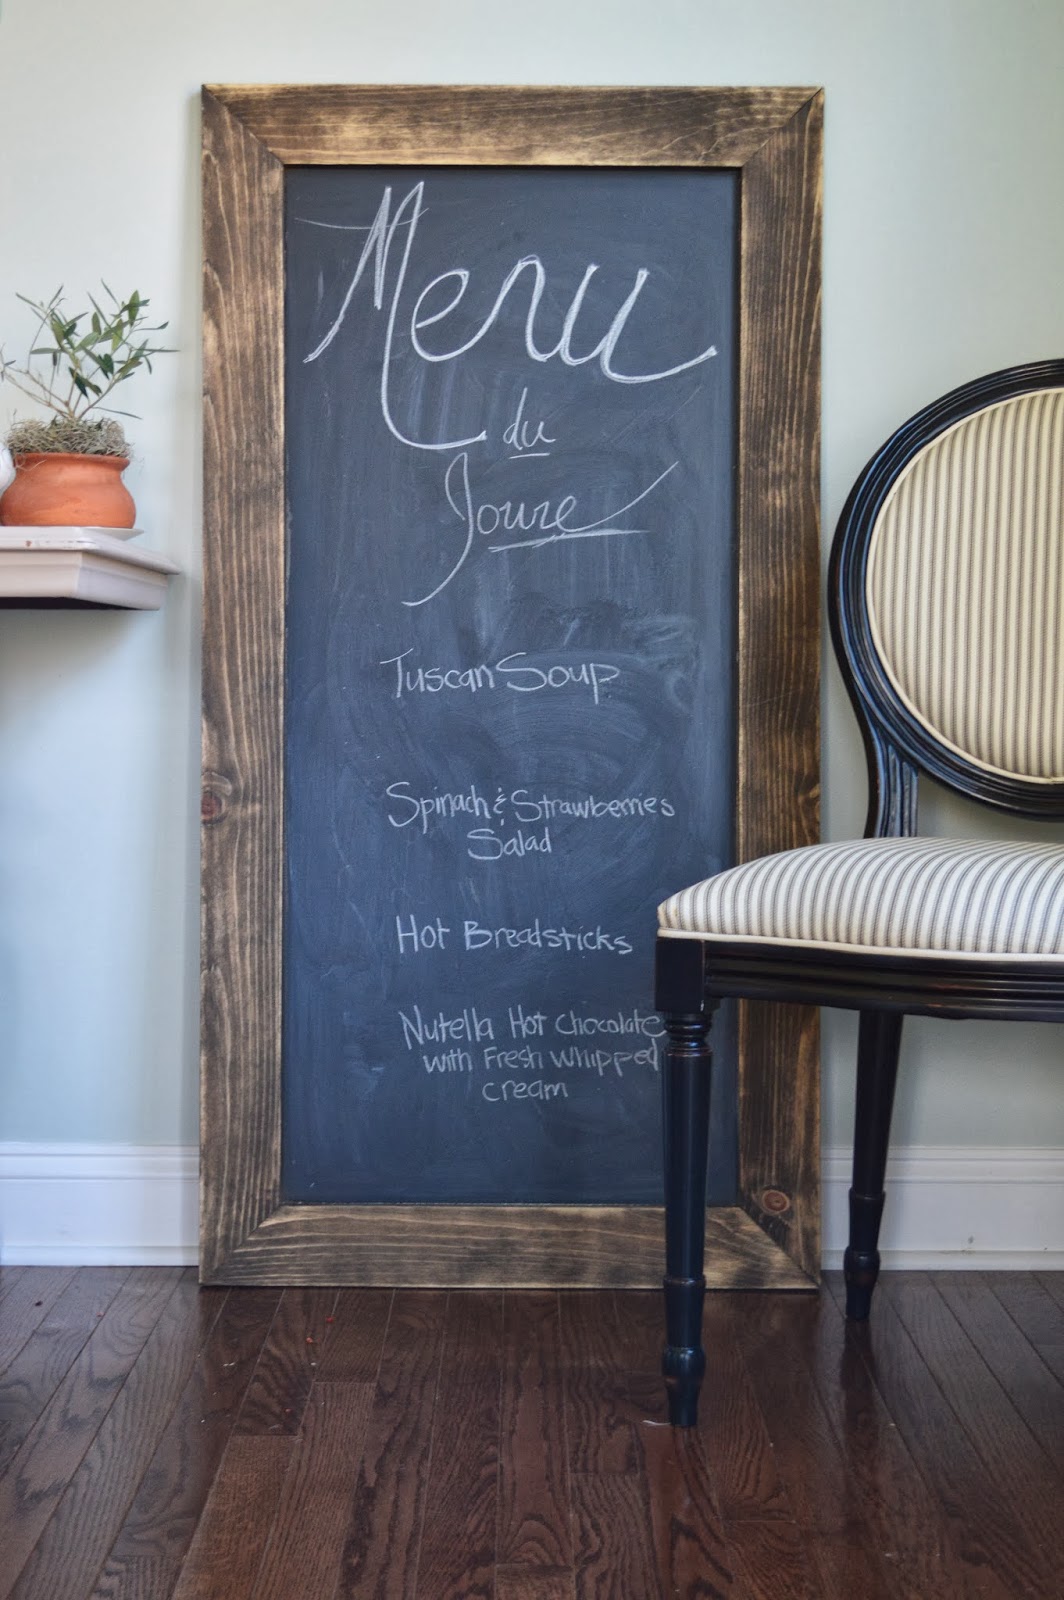 Menu
du
Joure
Tuscan Soup
Spinach & Strawberries
Salad
Hot Breadsticks
Nutella Hot Chocolate
with Fresh Whipped
cream